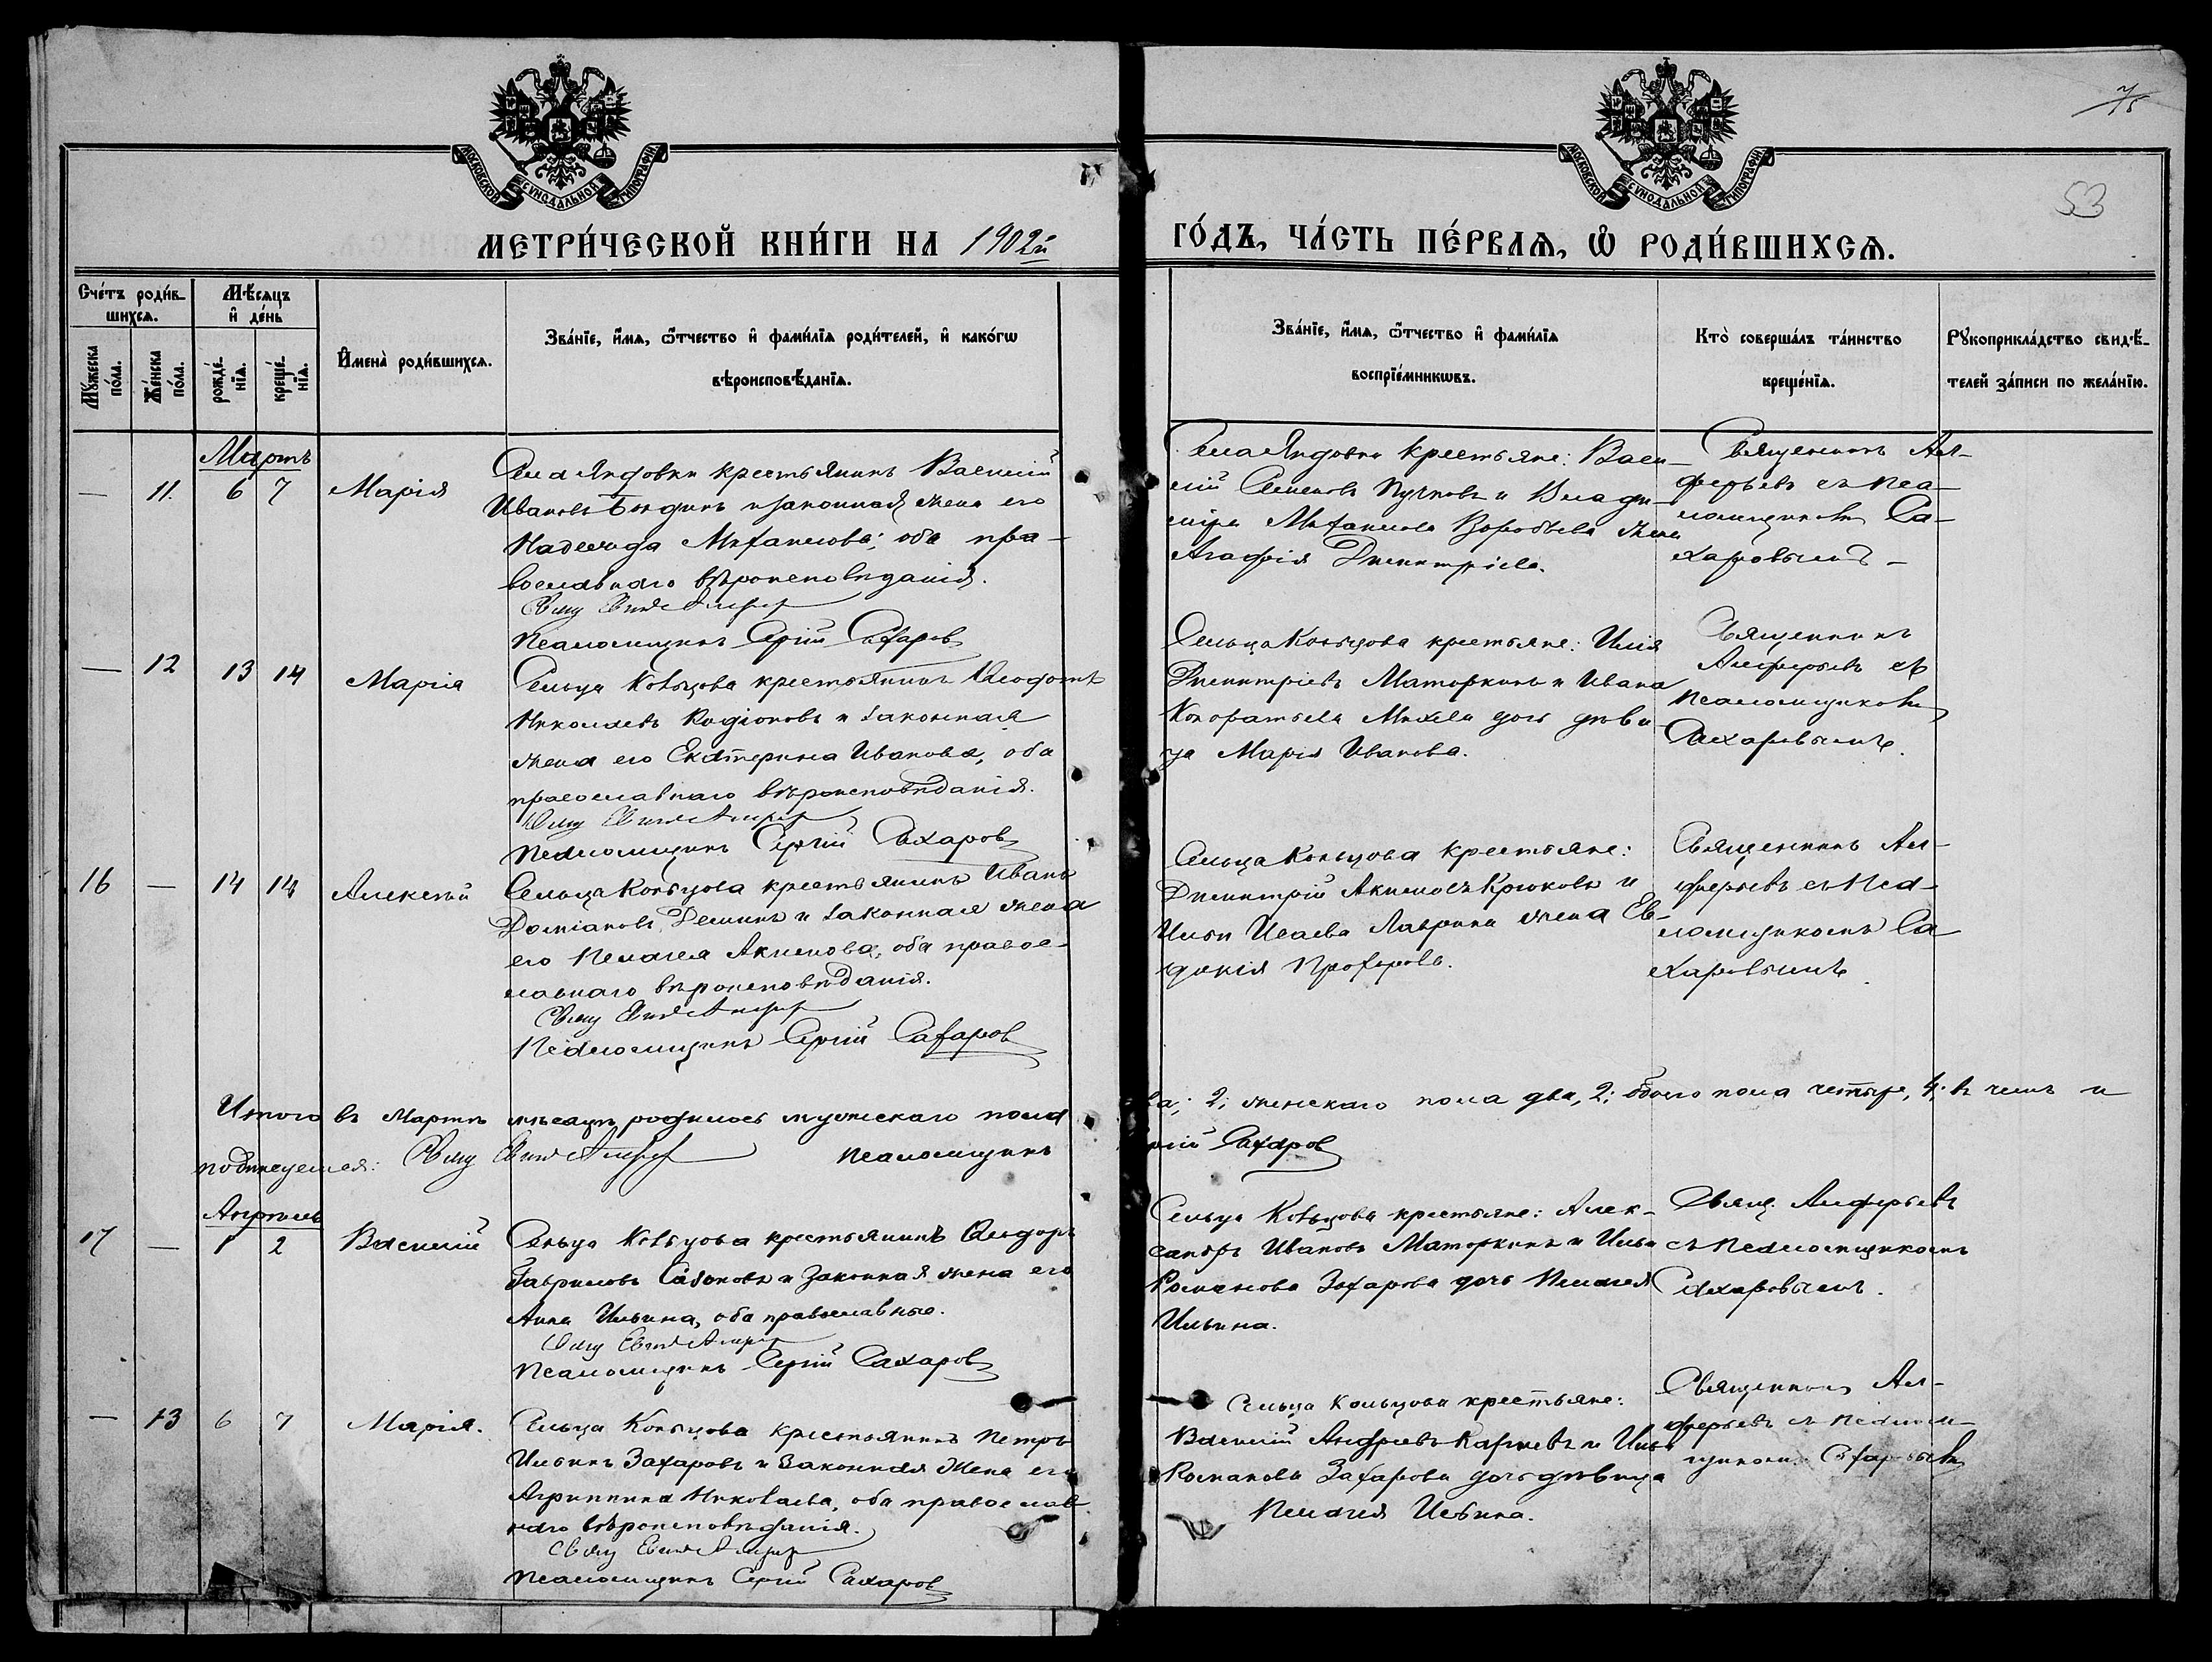 МОСКОВСКОЙ СѴНОДАЛЬНОЙ ТИПОГРАФІИ
МОСКОВСКОЙ СѴНОДАЛЬНОЙ ТИПОГРАФІИ
53
МЕТРИ́ЧЕСКОЙ КНИ́ГИ НА 1902й
ГО́ДЪ, ЧА́СТЬ ПЕ́РВАѦ, Ѡ҆ РОДИ́ВШИХСѦ.
Сче́тъ роди́в-
шихсѧ.
Мѣ́сѧцъ
и҆ де́нь
Мꙋ́жеска
по́ла.
Же́нска
по́ла.
рожде́-
нїѧ.
креще́-
нїѧ.
И҆мена̀ роди́вшихсѧ.
Зва́нїе, и҆́мѧ, ѻ҆́тчество и҆ фами́лїѧ роди́телей, и҆ како́гѡ
вѣроисповѣ́данїѧ.
Зва́нїе, и҆́мѧ, ѻ҆́тчество и҆ фами́лїѧ
воспрїе́мникѡвъ.
Кто̀ соверша́лъ та́инство
креще́нїѧ.
Рꙋкоприкла́дство свидѣ́-
телей за́писи по жела́нїю.
Мартъ
— 11. 6 7 Марія
Села Яндовки крестьянинъ Василій
Ивановъ и законная жена его
Надежда Михаилова; оба пра-
вославнаго вѣроисповѣданія.
Псаломщикъ Сергій Сахаровъ
Села Яндовки крестьяне: Васи-
лій Семеновъ Пучковъ и Влади-
міра Михаилова Воробьева жена
Агафія Димитріева.
Священникъ Ал-
ферьевъ съ пса-
ломщикомъ Са-
харовымъ —
— 12 13 14 Марія
Сельца Кольцова крестьянинъ
Николаевъ Родіоновъ и законная
жена его Екатерина Иванова, оба
православнаго вѣроисповѣданія.
Псаломщикъ Сергій Сахаровъ
Сельца Кольцова крестьяне: Илія
Димитріевъ Маторкинъ и Ивана
Кондратьева дочь дѣви-
ца Марія Иванова.
Священникъ
Алферьевъ съ
псаломщикомъ
Сахаровымъ.
16 — 14 14 Алексѣй
Сельца Кольцова крестьянинъ Иванъ
Даміановъ Деминъ и законная жена
его Пелагея Акимова, оба правос-
лавнаго вѣроисповѣданія.
Псаломщикъ Сергій Сахаровъ
Сельца Кольцова крестьяне:
Димитрій Акимовъ Крюковъ и
Ильи Исаева Лаврина жена Ев-
докія Прохорова.
Священникъ Ал-
ферьевъ съ пса-
ломщикомъ Са
харовымъ
Итого въ Мартѣ мѣсяцѣ родилось мужескаго пола
ва; 2; женскаго пола два, 2; обоего пола четыре, 4; въ чемъ и
подписуемся: Псаломщикъ
ргій Сахаровъ
Апрѣль
17 — 1 2 Василій
Сельца Кольцова крестьянинъ Ѳеодоръ
Гавриловъ Сазоновъ и законная жена его
Анна Ильина, оба православные.
Псаломщикъ Сергій Сахаровъ
Сельца Кольцова крестьяне: Алек-
сандръ Ивановъ Маторкинъ и Ильи
Романова Захарова дочь Пелагея
Ильина.
Свящ. Алферьевъ
съ псаломщикомъ
Сахаровымъ.
— 13 6 7 Марія.
Сельца Кольцова крестьянинъ Петръ
Ильинъ Захаровъ и законная жена его
Агриппина Николаева, оба православ
наго вѣроисповѣданія.
Псаломщикъ Сергій Сахаровъ
Сельца Кольцова крестьяне:
Василій Андреевъ и Ильи
Романова Захарова дочь дѣвица
Пелагея Ильина.
Священникъ Ал-
ферьевъ съ псалом-
щикомъ Сахаровымъ